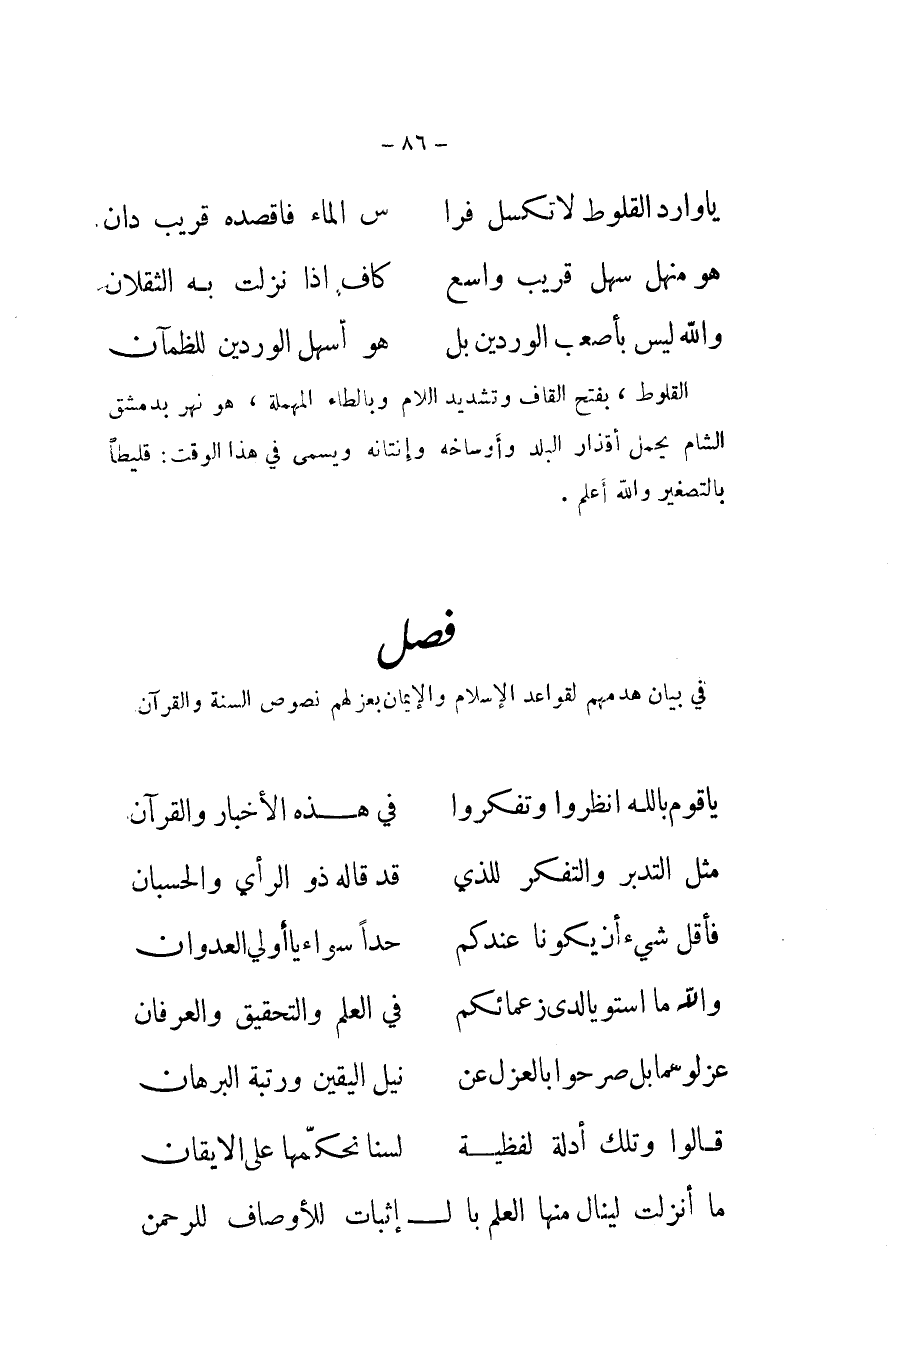 - ٨٦ -
ياوارد القلوط لاتكسل فرا س الماء فاقصده قريب دان.
هو منهل سهل قريب واسع كاف اذا نزلت به الثقلان
والله ليس بأصعب الوردين بل هو أسهل الوردين للظمآن
القلوط ، بفتح القاف وتشديد اللام وبالطاء المهملة ، هو نهر بدمشق
الشام يحمل أقذار البلد وأوساخه وإنتانه ويسمى في هذا الوقت : قليطاً
بالتصغير والله أعلم .
فصل
في بيان هدمهم لقواعد الإسلام والإيمان بعزلهم نصوص السنة والقرآن
ياقوم بالله انظروا وتفكروا في هذه الأخبار والقرآن
مثل التدبر والتفكر للذي قد قاله ذو الرأي والحسبان
فأقل شيء أن يكونا عندكم حداً سواء ياأولي العدوان
والله ما استويا لدى زعمائكم في العلم والتحقيق والعرفان
عزلوهما بل صرحوا بالعزل عن نيل اليقين ورتبة البرهان
قالوا وتلك أدلة لفظية لسنا نحكّمها على الايقان
ما أنزلت لينال منها العلم با لـإثبات للأوصاف للرحمن